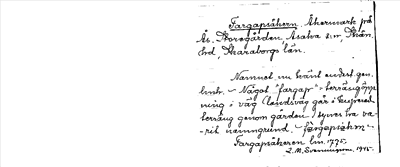 Fargapsåkern. Åkermark på
Ås, Storegården, Åsaka sn,
hrd, Skaraborgs län.
Namnet nu känt endast gen.
lmtr. – Något "fargap" = terrängöpp
ning i väg landsväg går i
terräng genom gården / synes ha va
rit namngrund. – fårgapsåkrn
Fargapsåkeren lm. 1775.
L.M. Svenungsson. 1945.